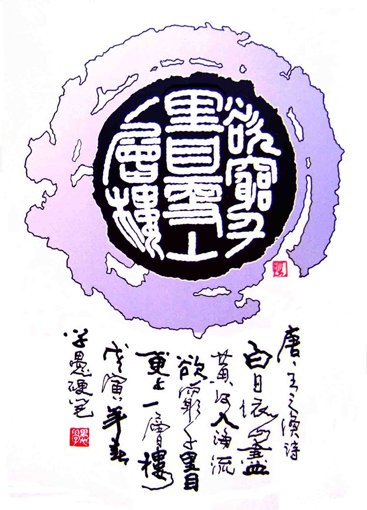 欲窮千
里目更上
一層樓
唐·王之渙詩
白日依山盡
黄河入海流
欲窮千里目
更上一層樓
戊寅年春
学愚硬笔